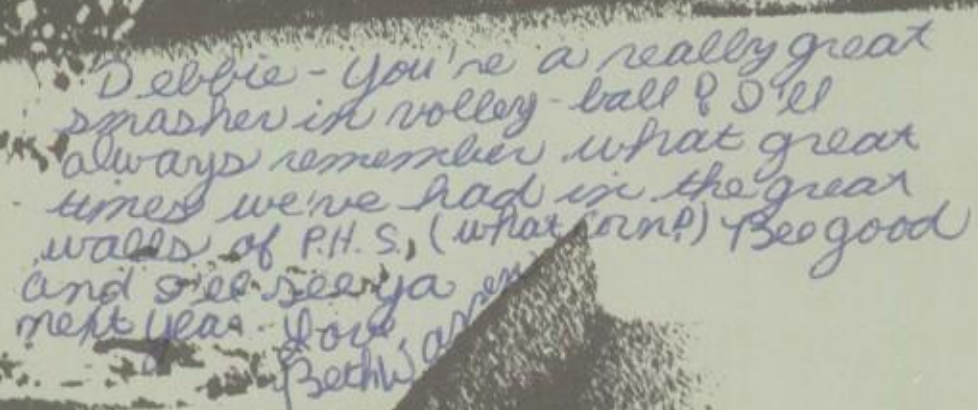 Debbie - You're a really great
smasher in volley-ball! I'll
always remember what great
times we've had in the great
walls of P.H.S., (what corn?) Bee good
and I'll see ya
next year. Love,
Beth W.